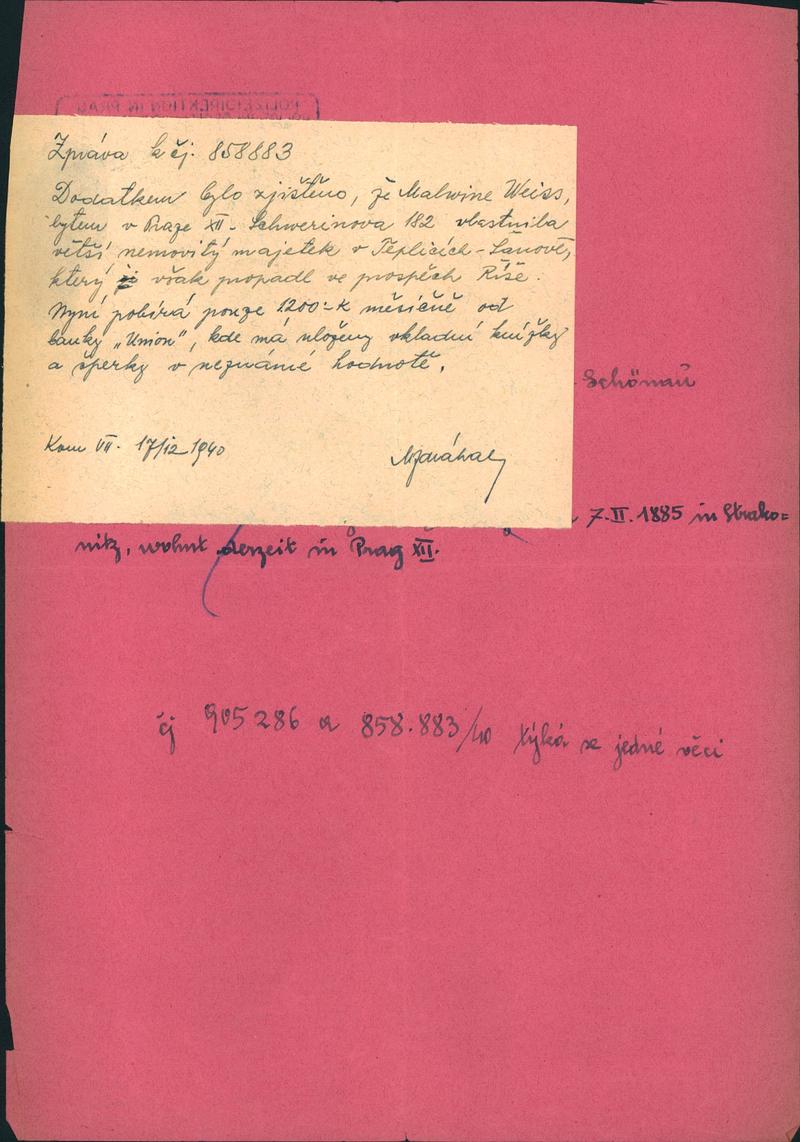 POLIZEIDIREKTION IN PRAG
Zpráva k čj. 858883
Dodatkem bylo zjištěno, že Malwine Weiss,
bytem v Praze XII - Schwerinova 182 vlastnila
větší nemovitý majetek v Teplicích-Šanově,
který však propadl ve prospěch Říše.
Nyní pobírá pouze 1200·- K měsíčně od
banky „Union", kde má uloženy vkladní knížky
a šperky v neznámé hodnotě.
- Schönau
Kom VII. 17/12 1940
7.II.1885 in Strako=
nitz, wohnt derzeit in Prag XII.
čj 905286 a 858.883/40 týká se jedné věci